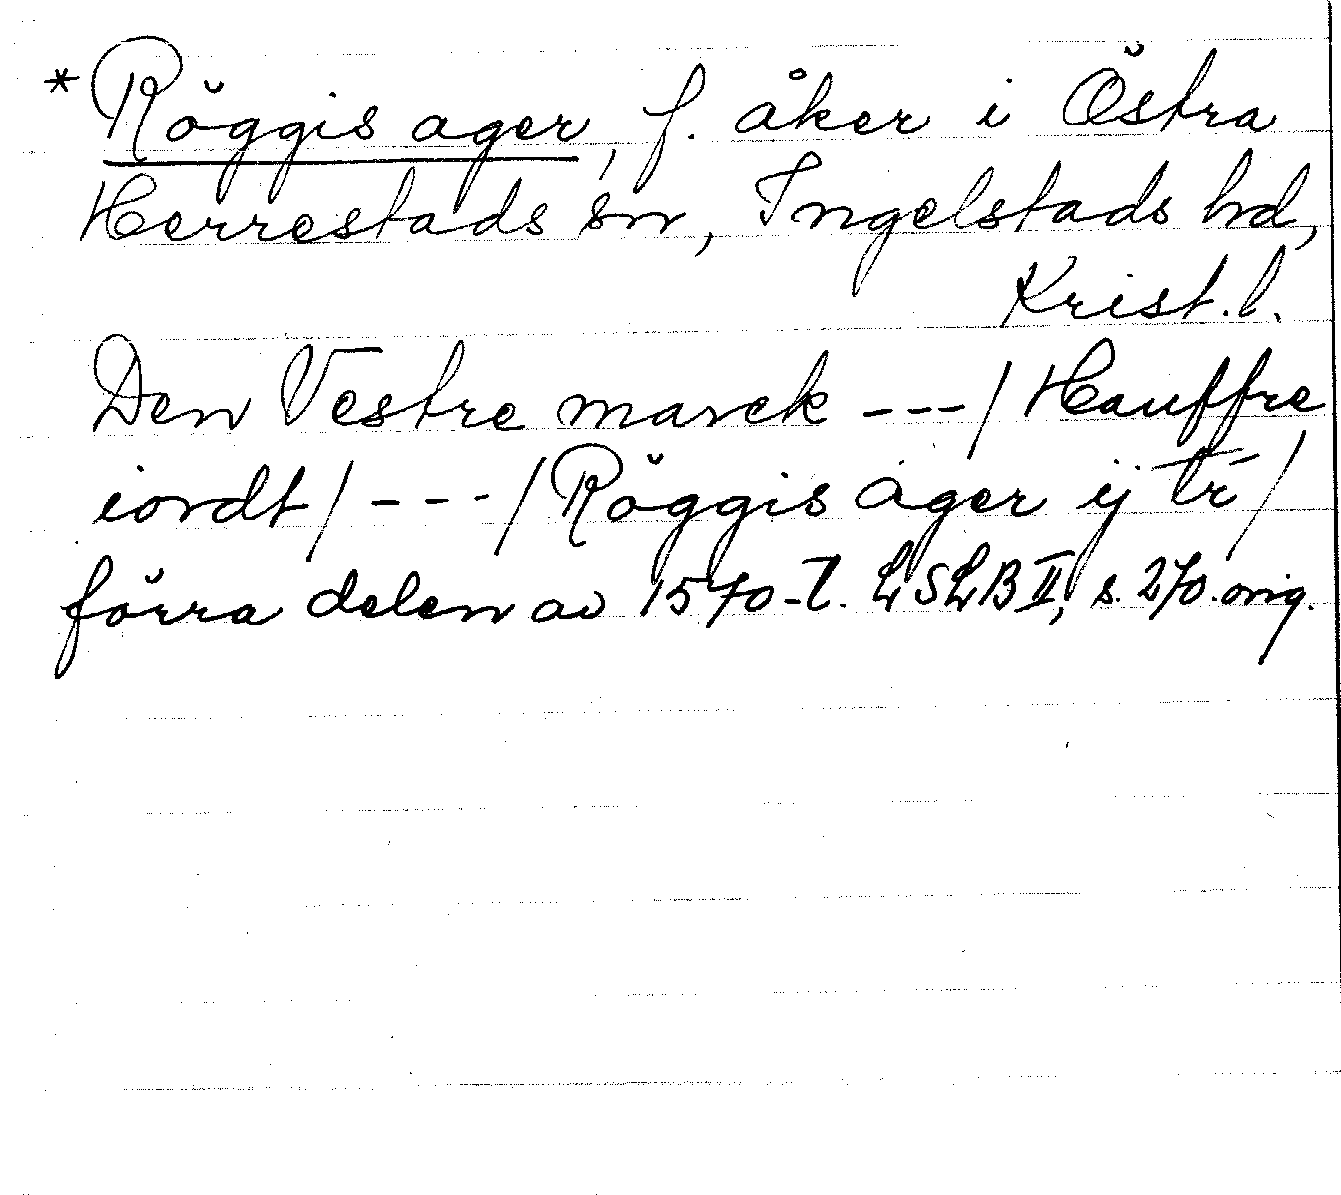 * Röggis ager, f. åker i Östra
Herrestads sn, Ingelstads hd,
Krist. l.
Den Vestre marck ---/ Hauffre
iordt/ ---/ Röggis ager ij tr/
förra delen av 1570-t. LSLB II, s. 270. orig.